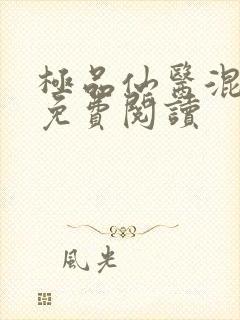 極品仙醫混
免費閱讀
風光